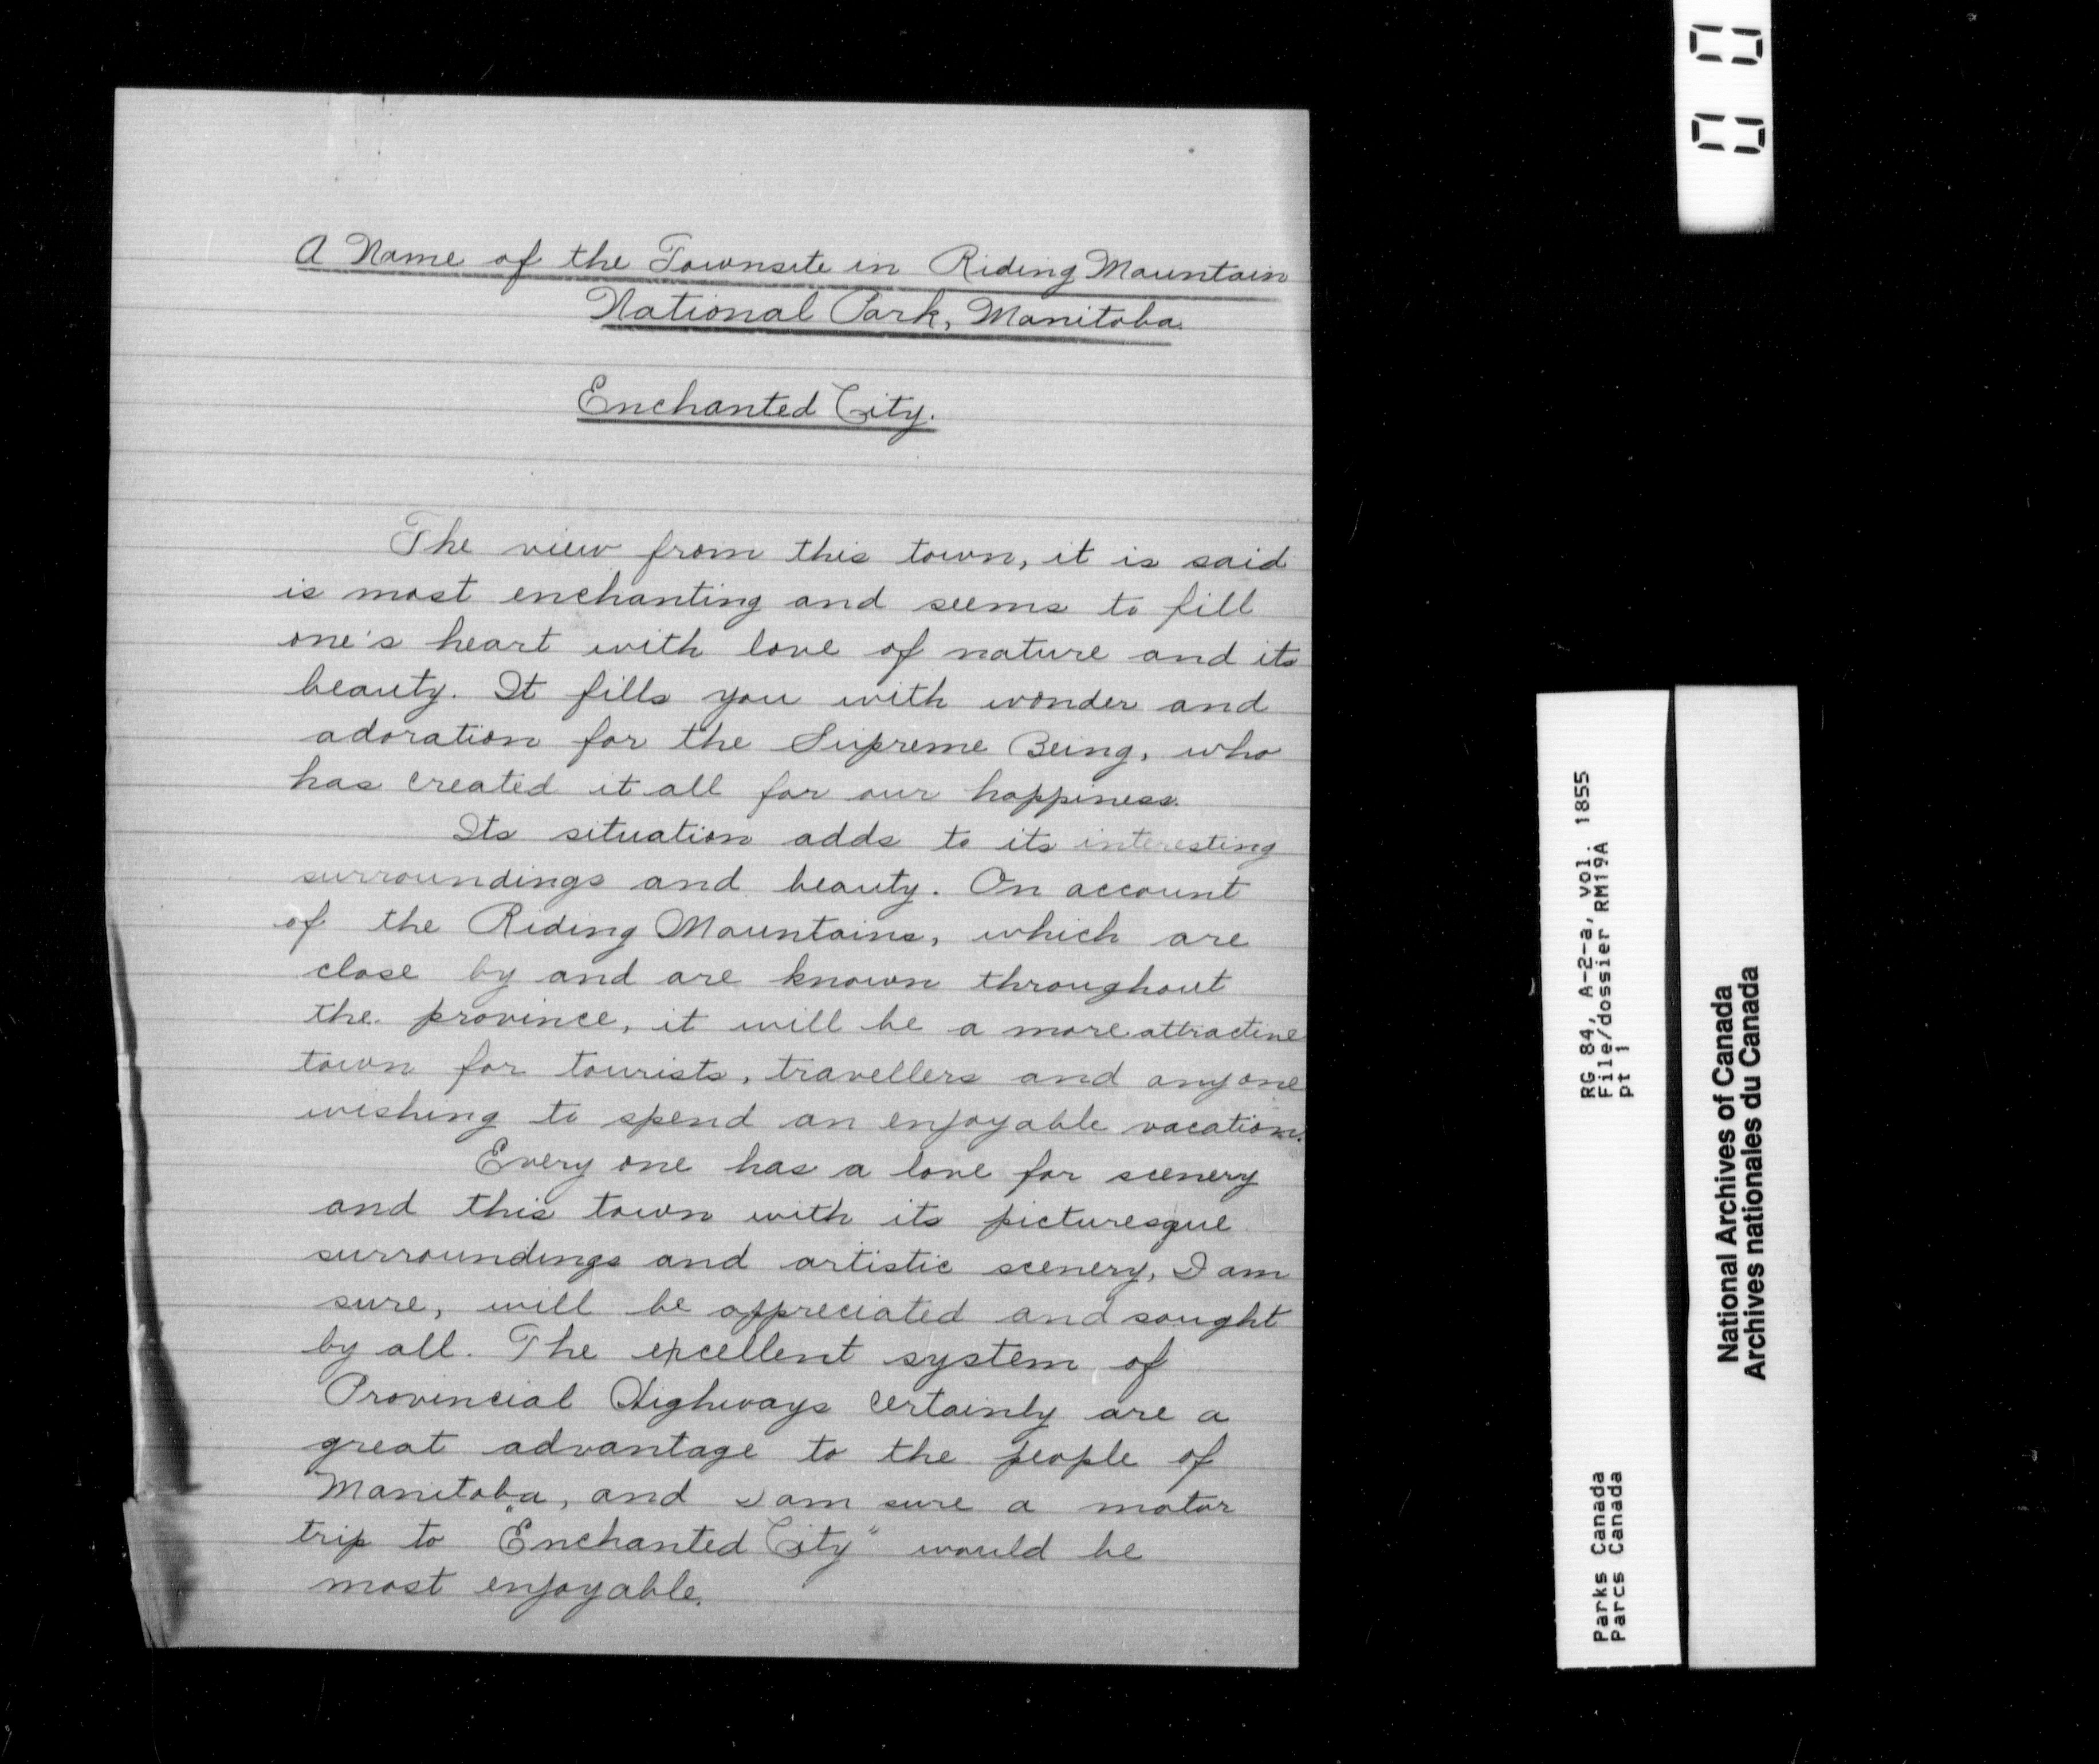 A Name of the Townsite in Riding Mountain
National Park, Manitoba.
Enchanted City.
The view from this town, it is said
is most enchanting and seems to fill
one's heart with love of nature and its
beauty. It fills you with wonder and
adoration for the Supreme Being, who
has created it all for our happiness.
Its situation adds to its interesting
surroundings and beauty. On account
of the Riding Mountains, which are
close by and are known throughout
the province, it will be a more attractive
town for tourists, travellers and anyone
wishing to spend an enjoyable vacation.
Every one has a love for scenery
and this town with its picturesque
surroundings and artistic scenery, I am
sure, will be appreciated and sought
by all. The excellent system of
Provincial Highways certainly are a
great advantage to the people of
Manitoba, and I am sure a motor
trip to "Enchanted City" would be
most enjoyable.
RG 84, A-2-a, vol. 1855
File/dossier RM19A
pt 1
Parks Canada
Parcs Canada
National Archives of Canada
Archives nationales du Canada